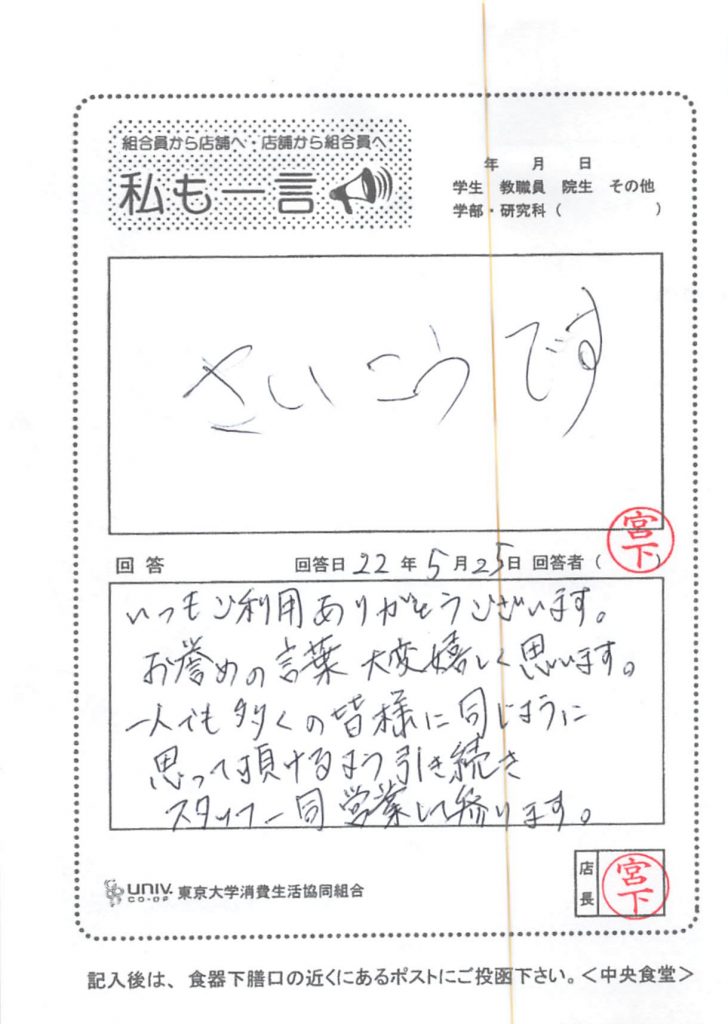 組合員から店舗へ・店舗から組合員へ
私も一言
年 月 日
学生 教職員 院生 その他
学部・研究科（ ）
さいこうです
回答 回答日 22年 5月25日 回答者（宮下）
いつもご利用ありがとうございます。
お誉めの言葉 大変嬉しく思います。
一人でも多くの皆様に同じように
思って頂けるよう引き続き
スタッフ一同営業して参ります。
店長 宮下
UNIV. CO-OP 東京大学消費生活協同組合
記入後は、食器下膳口の近くにあるポストにご投函下さい。＜中央食堂＞